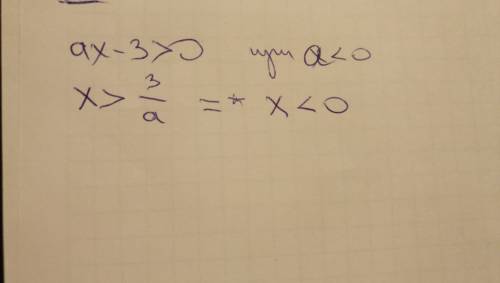 ax - 3 > 0 при a < 0
x > 3/a => x < 0